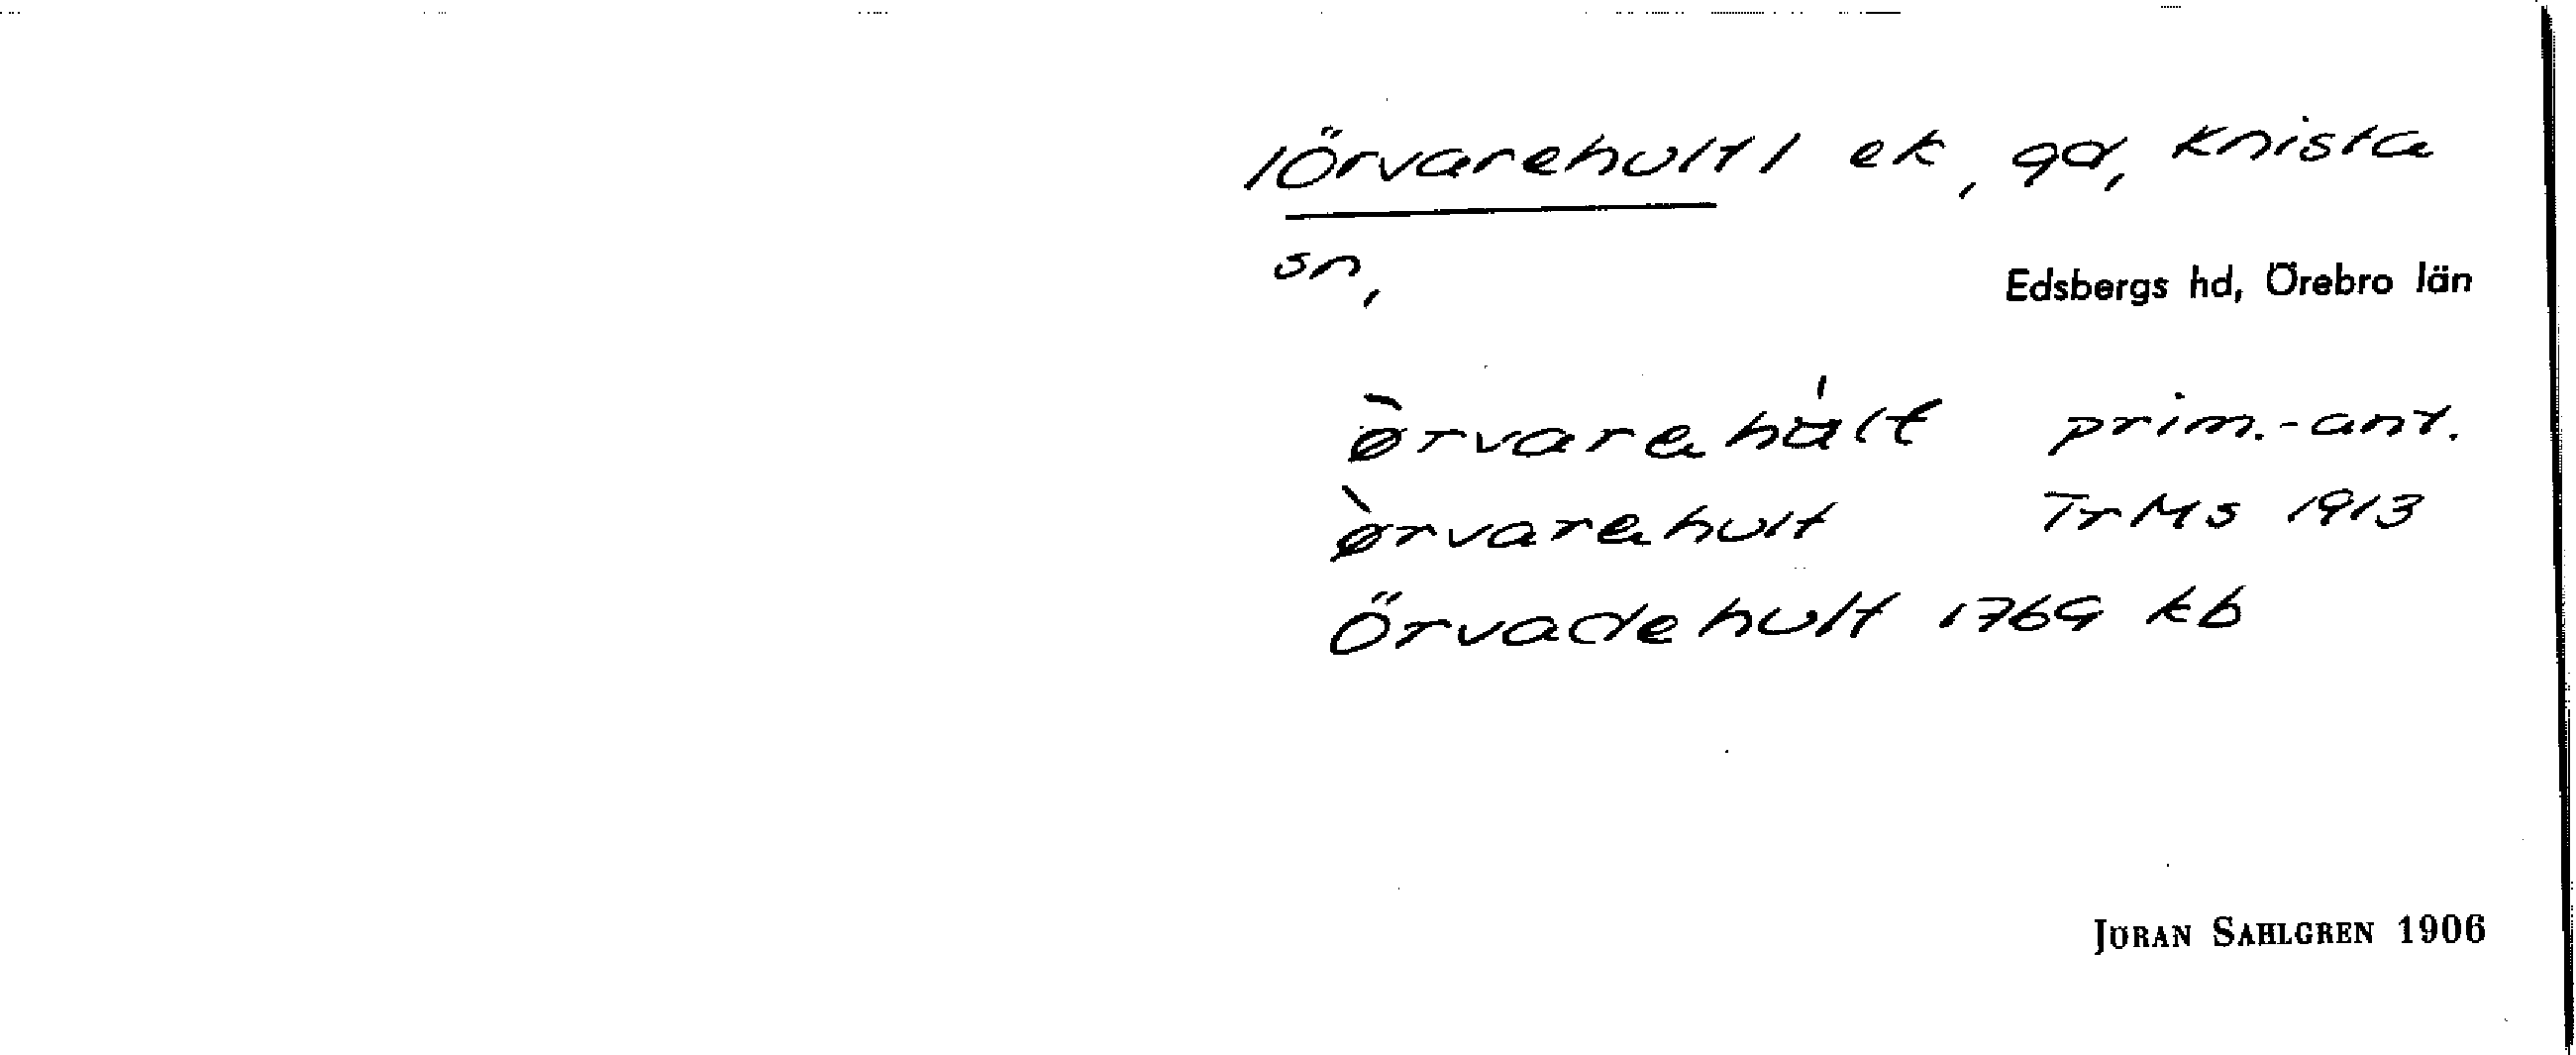 /Örvarehult/ ek, gd, Knista
sn,
Edsbergs hd, Örebro län
ø̀rvarahúlt prim.-ant.
ø̀rvarahult TrMs 1913
Örvadehult 1769 kb
JÖRAN SAHLGREN 1906